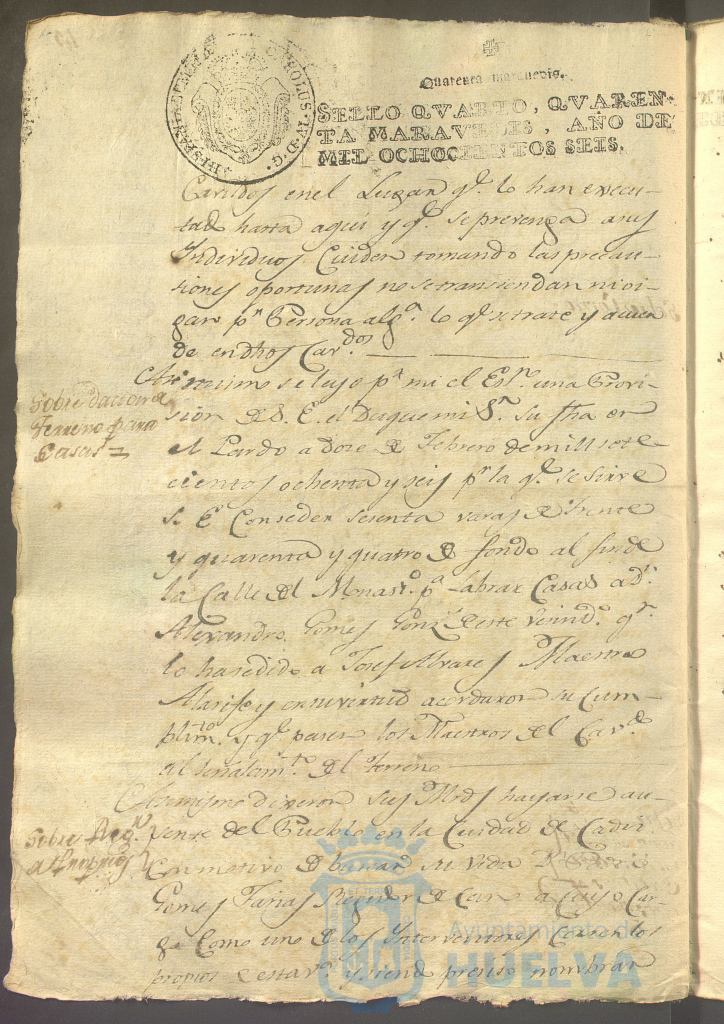 Quarenta maravedis.
SELLO QVARTO, QVAREN-
TA MARAVEDIS, AÑO DE
MIL OCHOCIENTOS SEIS.
CAROLUS IV D.G. HISPANIAR
en el Lugar qe. lo han execu-
tado hasta aquí y qe. se prevenga a sus
Individuos Cuiden tomando las precau-
siones oportunas no se transciendan ni oi-
gan pr. Persona alga. lo qe. se trate y acuer-
de en dhos Cavdos
Sobre dacion de
terreno para
Casas
Asimismo se leyó pr. mi el Esno. una Provi-
sion de S. E. el Duque mi Sr. su fha en
el Pardo a dose de Febrero de mill sete-
cientos ochenta y seis pr. la qe. se sirve
S. E. Conseder sesenta varas de frente
y quarenta y quatro de fondo al fin de
la Calle del Monasto. pa. labrar Casas a dn.
Alexandro Gomes Gonz. de este Vecindo. qe.
lo ha sedido a Josef Alvares Maestro
Alarife y en su virtud acordaron su Cum-
plimto. y qe. pasen los Maestros del Cavdo.
al señalamto. del terreno
Sobre Regor.
Asimismo dixeron sus Mrds hayarse au-
sente del Pueblo en la Ciudad de Cadiz
Con motivo de buscar su vida
Gomes Farias Regidor de Cano a Cuyo Car-
go Como uno de los Interventores Corren los
propios de esta va. y siendo presiso nombrar
Ayuntamiento de
HUELVA